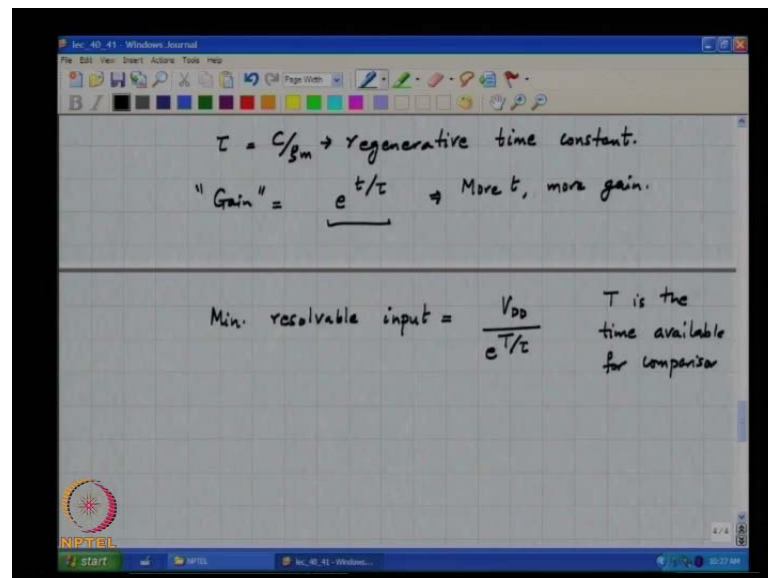 lec_40_41 - Windows Journal
File Edit View Insert Actions Tools Help
Page Width
B I
τ = C/gm → regenerative time constant.
"Gain" = e^{t/τ} ⇒ More t, more gain.
Min. resolvable input = V_{DD} / e^{T/τ}
T is the
time available
for comparisor
4/4
NPTEL
start
NPTEL
lec_40_41 - Windows...
10:27 AM